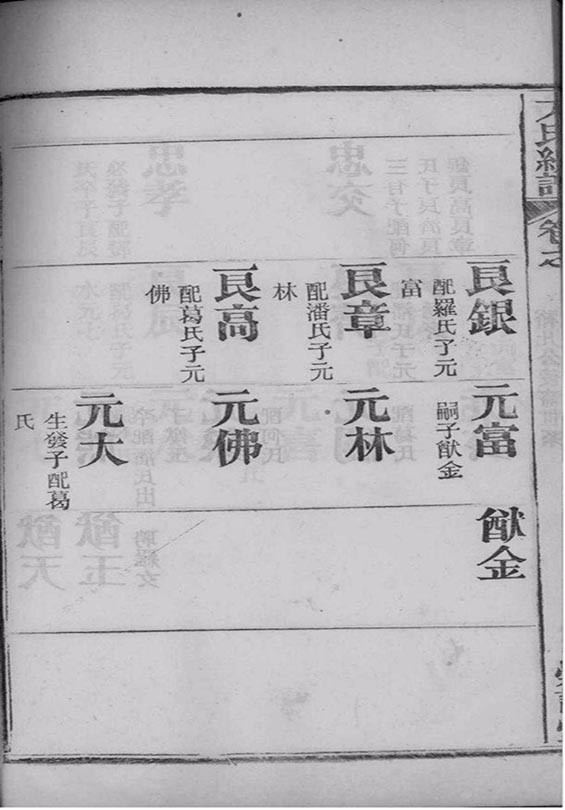 氏總譜
卷之
良銀
配羅氏子元
富
良章
配潘氏子元
林
良高
配葛氏子元
佛
元富
嗣子猷金
元林
元佛
元大
生發子配葛
氏
猷金